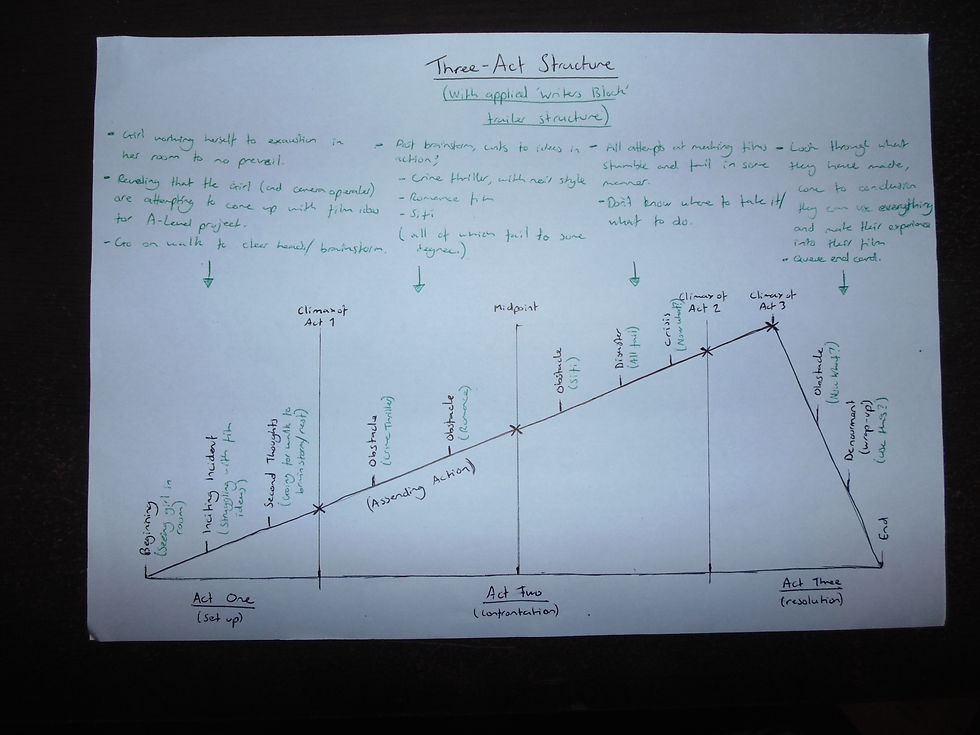 Three-Act Structure
(With applied 'Writers Block'
trailer structure)
- Girl working herself to exaustion in
her room to no prevail.
- Revealing that the Girl (and camera operator)
are attempting to come up with film idea
for A-Level project.
- Go on walk to clear heads/ brainstorm.
- Post brainstorm, cuts to ideas in
action;
- Crime thriller, with noir style
- Romance film
- Sifi
(all of which fail to some
degree.)
- All attempts at making films
stumble and fail in some
manner.
- Don't know where to take it/
what to do.
- Look through what
they have made,
come to conclusion
they can use everything
and make their experience
into their film
- Queue end card.
Climax of
Act 1
Midpoint
Climax of
Act 2
Climax of
Act 3
Beginning
(Seeing girl in
room)
Inciting Incident
(Struggling with film
ideas)
Second Thoughts
(Going for walk to
brainstorm/rest)
Obstacle
(Crime Thriller)
Obstacle
(Romance)
(Assending Action)
Obstacle
(Sifi)
Disaster
(All fail)
Crisis
(Now what?)
Obstacle
(Now What?)
Denourment
(wrap-up)
(use this?)
End
Act One
(set up)
Act Two
(confrontation)
Act Three
(resolution)